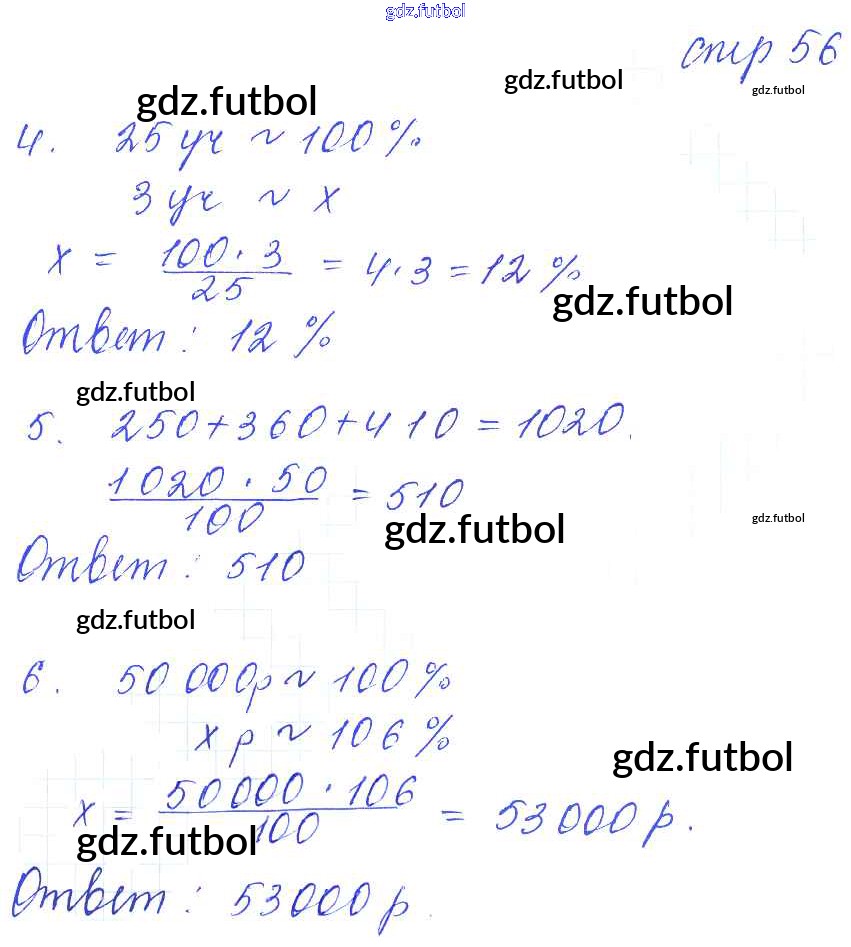 gdz.futbol
стр 56
gdz.futbol
gdz.futbol
gdz.futbol
4. 25 уч ~ 100 %
3 уч ~ x
x = 100 · 3 / 25 = 4 · 3 = 12 %
gdz.futbol
Ответ : 12 %
gdz.futbol
5. 250 + 360 + 410 = 1020.
1020 · 50 / 100 = 510
gdz.futbol
gdz.futbol
Ответ : 510
gdz.futbol
6. 50 000р ~ 100 %
x р ~ 106 %
gdz.futbol
x = 50 000 · 106 / 100 = 53 000 р.
gdz.futbol
Ответ : 53 000 р.